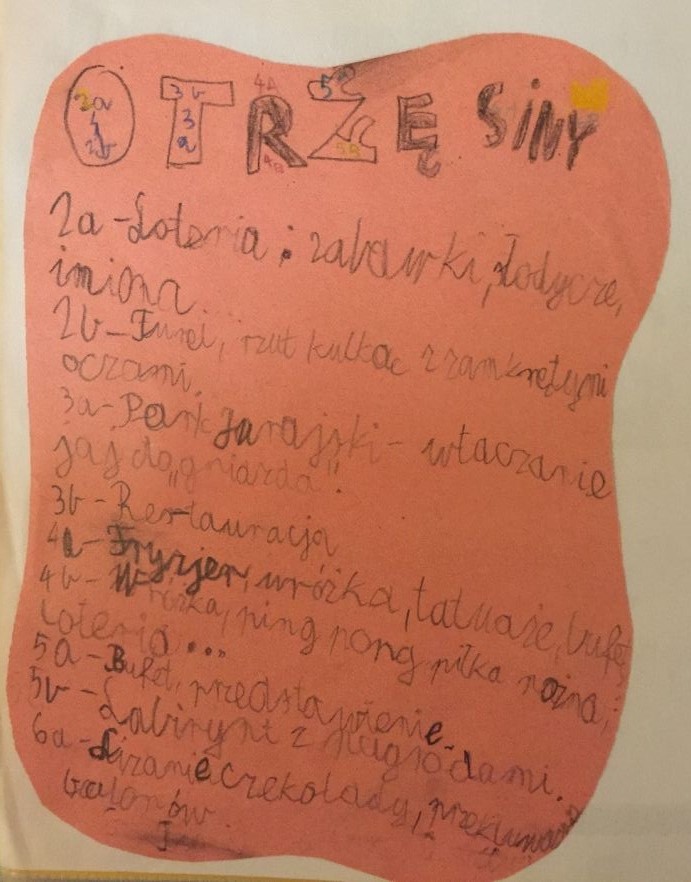 OTRZĘSINY
2a 2b 3b 3a 4A 4B 5a 5B
2a - Loteria: zabawki, słodycze,
imiona...
2b - Tunel, rzut kulkac z zamkniętymi
oczami.
3a - Park Jurajski - wtaczanie
jaj do "gniazda".
3b - Restauracja
4a - Fryzjer, wróżka, tatuaże, bufet
4b - Wróżka, ping pong piłka nożna,
loteria...
5a - Bufet, przedstawienie.
5b - Labirynt z nagrodami.
6a - Lizanie czekolady, przekłuwanie
balonów.